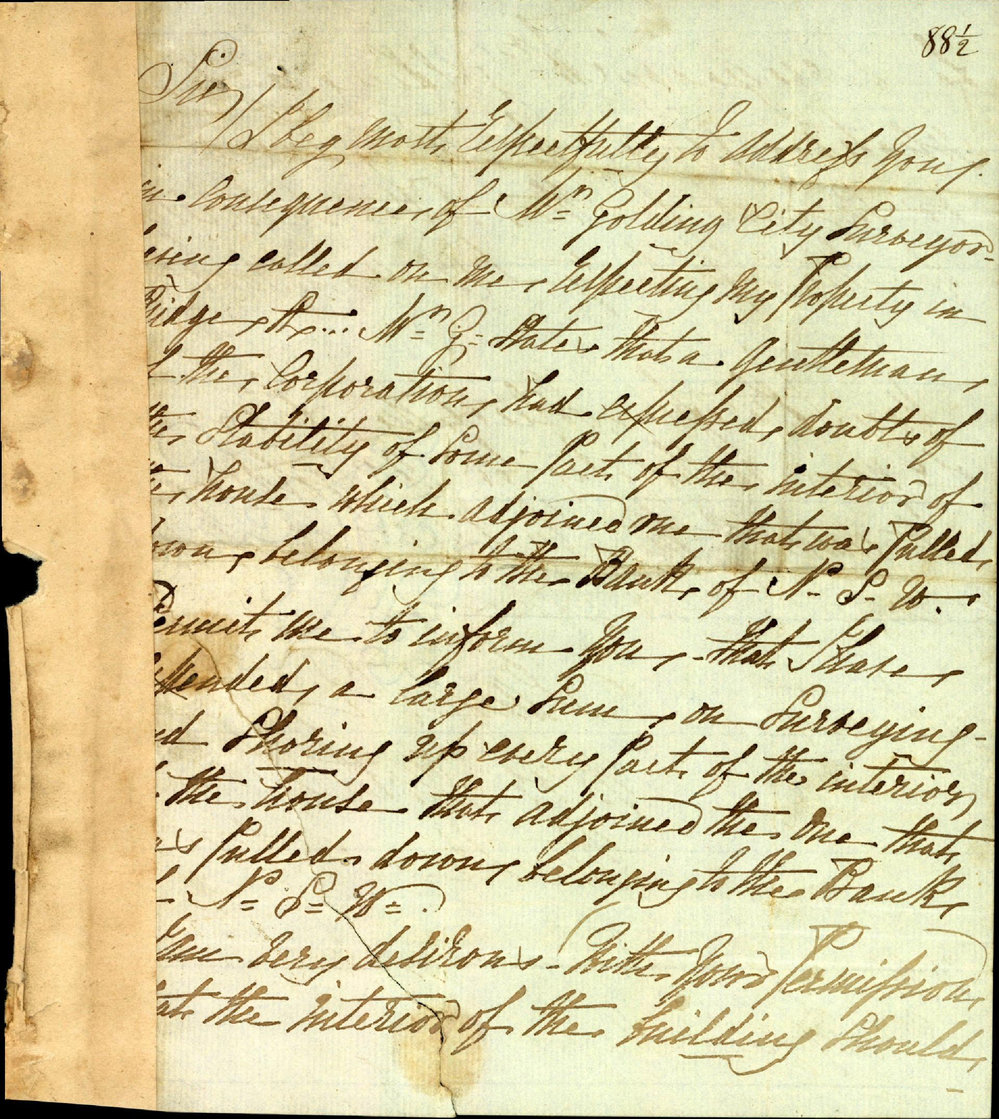 88½
Sir/
I beg most respectfully to address you
in consequence of Mr. Golding City Surveyor
having called on me respecting my Property in
Bridge St... Mr. G. States that a gentleman
of the Corporation, had expressed doubts of
the Stability of Some part of the interior of
the house which adjoined one that was Pulled
down, belonging to the Bank of N. S. W.
Permit me to inform you, that I have
expended, a large Sum, on Surveying
and Shoring up every part of the interior
of the house that adjoined the one that
was Pulled down, belonging to the Bank
of N. S. W.
I am very desirous - With your Permission
that the interior of the building Should